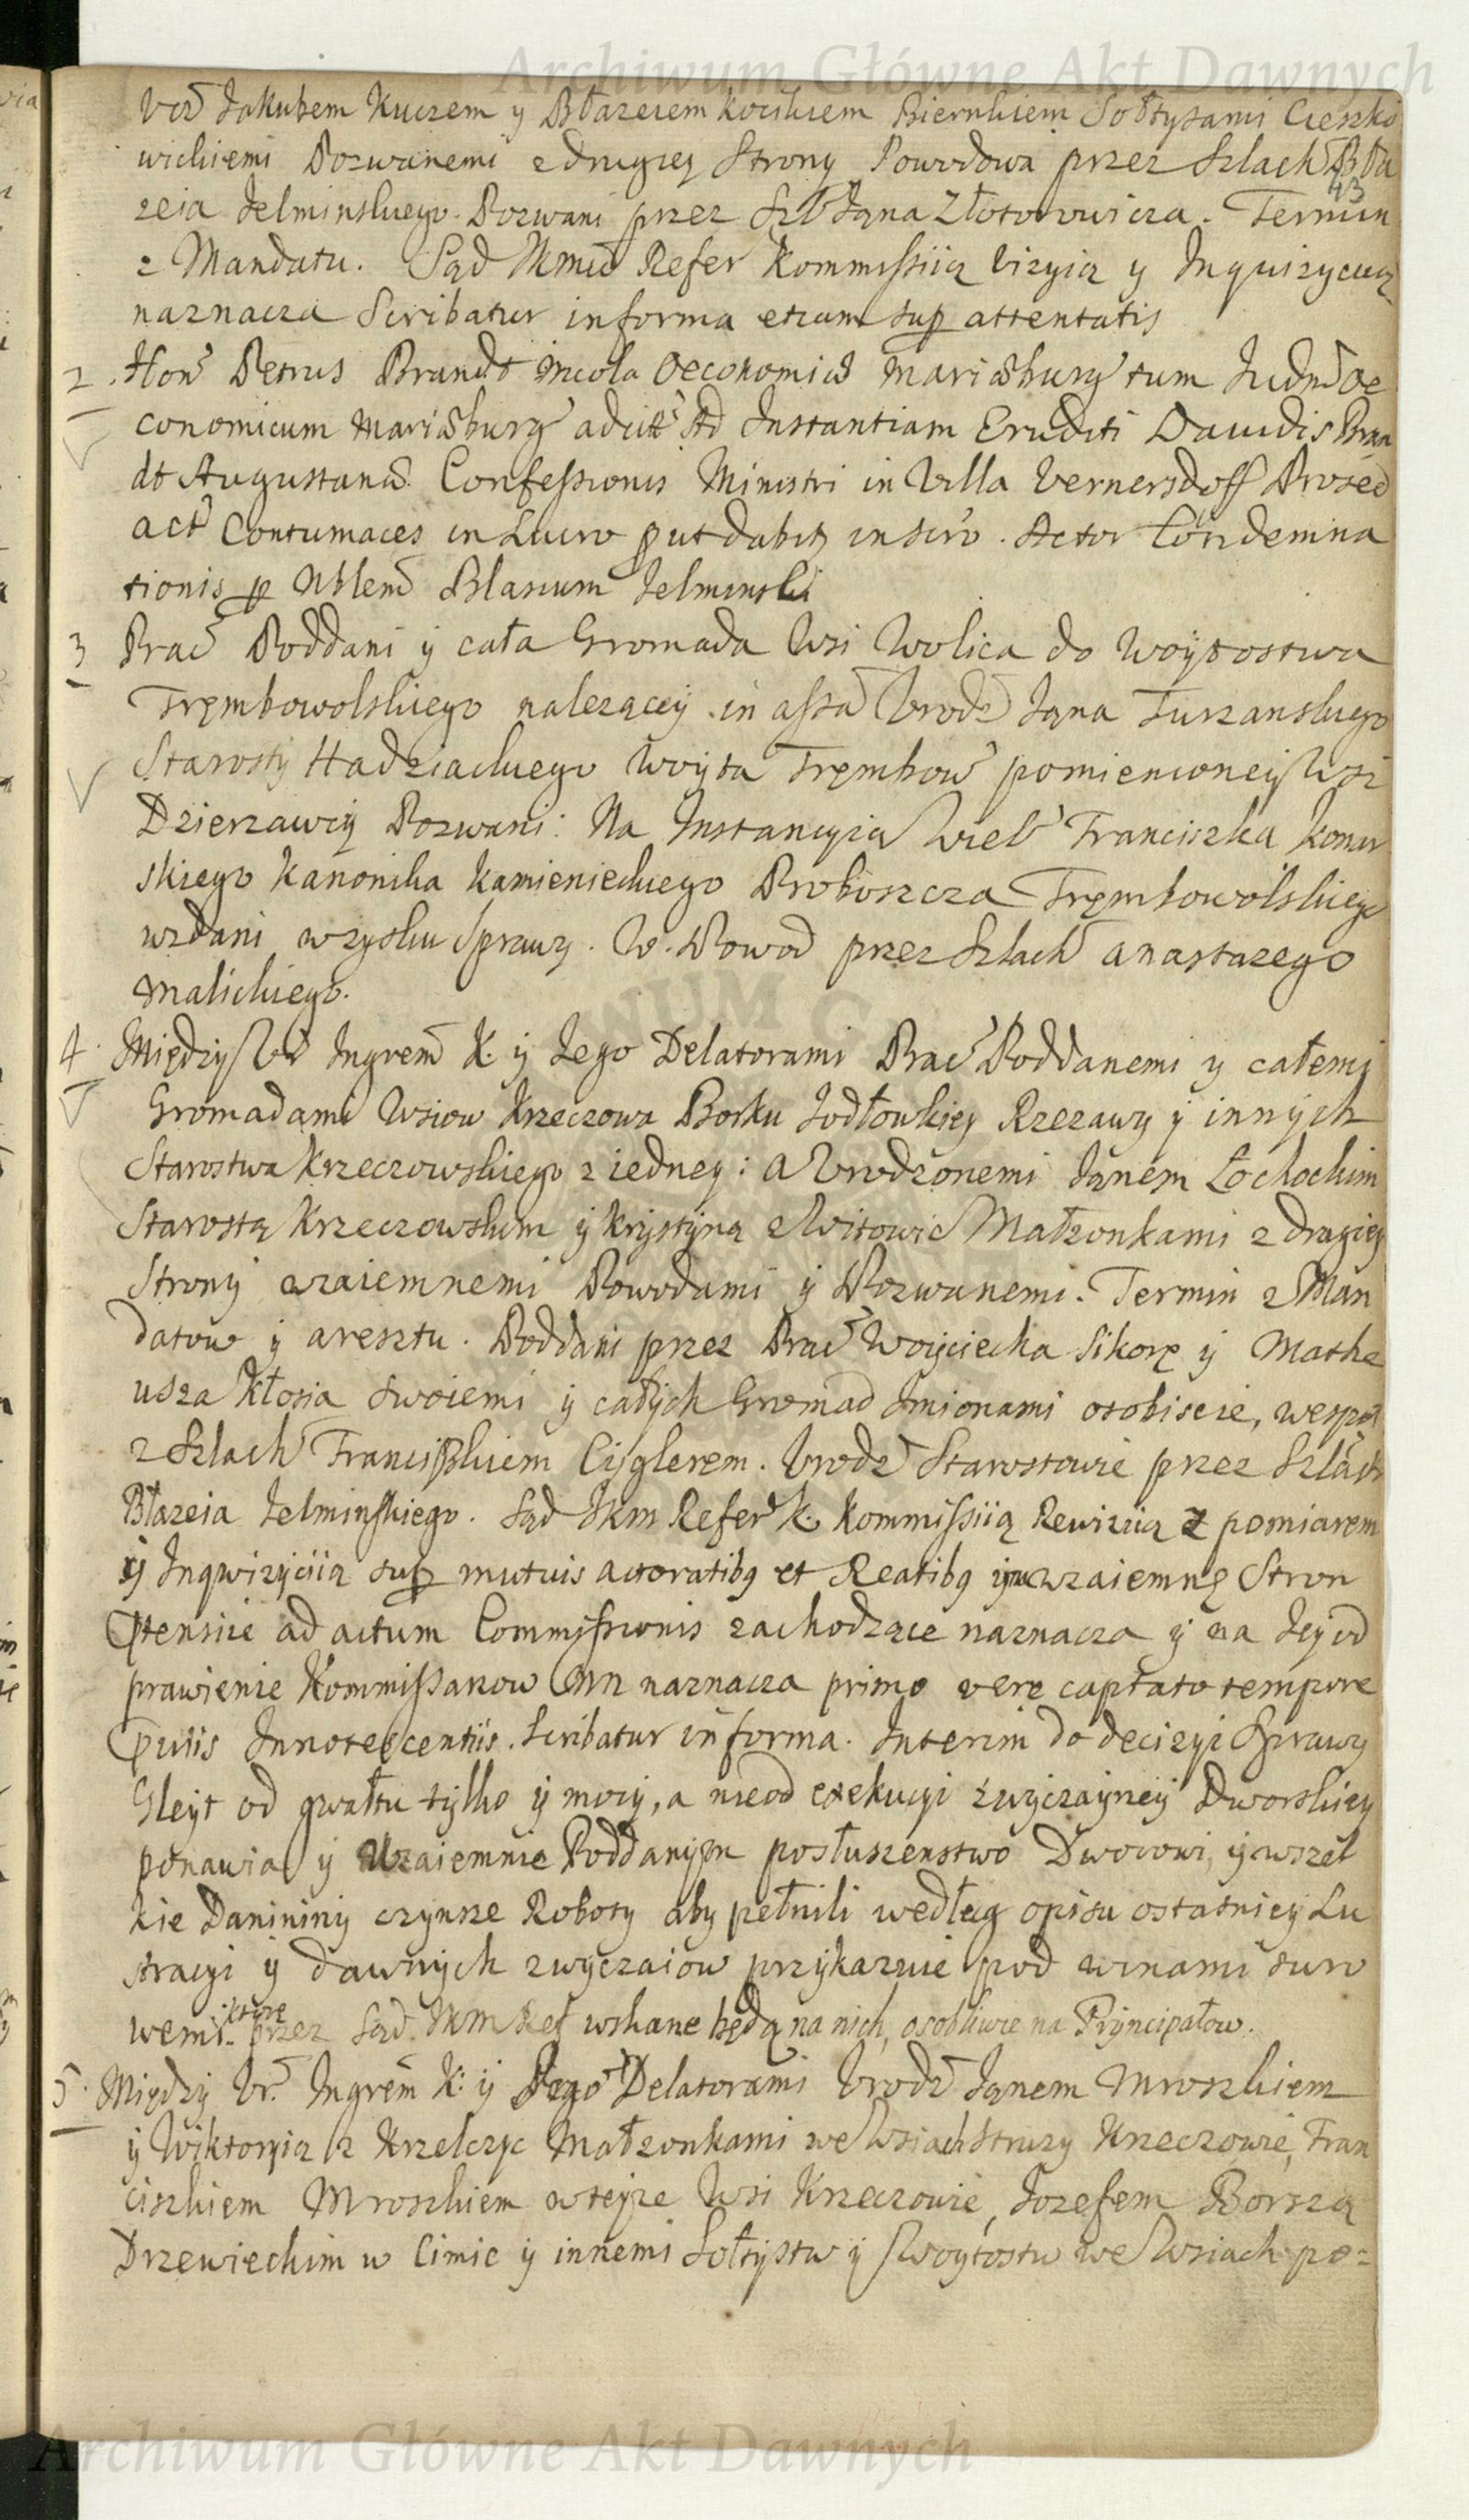 Archiwum Główne Akt Dawnych
Vrod Jakubem Kuczem y Błazeiem Kocikiem Biernkiem Sołtysami Cieszko
wickiemi Pozwanemi z drugiey Strony Powodowa przez Szlach Bła
43
zeia Jelminskiego. Pozwani przez Szl Jana Złotorowicza. Termin
z Mandatu. Sąd Jkmci Refer Kommissiią Vizyią y Inquizycyą
naznacza Scribatur in forma etiam sup attentatis
2. Hon Petrus Brandt Incola Oeconomiæ Mariæburg tum Judm Oe
conomicum Mariæburg adcitt Ad Instantiam Eruditi Davidis Bran
dt Augustanæ Confessionis Ministri in Villa Vernersdoff Prosed
act Contumaces in Lucro put dabit inscro. Actor Condemna
tionis p Nblem Blasium Jelminski
3 Prac Poddani y cała Gromada Wsi Wolica do Woytostwa
Trembowolskiego nalezącey in assa Vrodz Jana Turzanskiego
Starosty Hadziackiego Woyta Trembow pomienioney Wsi
Dzierzawcy Pozwani: Na Instancyią Wieb Franciszka Konar
skiego Kanonika Kamienieckiego Proboszcza Trembowolskiego
wzdani w zysku Sprawy. W. Powod przez Szlach Anastazego
Malickiego.
4. Między Vr Ingrem K. y Jego Delatorami Prac Poddanemi y całemi
Gromadami Wsiow Krzeczowa Borku Jodłowkiey Rzezawy y innych
Starostwa Krzeczowskiego z iedney: a Vrodzonemi Janem Łochockim
Starostą Krzeczowskim y Krystyną z Witowic Małzonkami z drugiey
Strony wzaiemnemi Powodami y Pozwanemi. Termin z Man
datow y aresztu. Poddani przez Prac Woyciecha Sikorę y Mathe
usza Kłosia swoiemi y całych Gromad Imionami osobiscie, wespoł
z Szlach Franciszkiem Cyglerem. Vrodz Starostowie przez Szlach
Błazeia Jelminskiego. Sąd Jkm Refer K. Kommissiią Rewizią z pomiarem
y Inqwizyciią sup mutuis actoratibq et Reatibq y wzaiemnę Stron
ptensiie ad actum Commissionis zachodzące naznacza y na Jey od
prawienie Kommissarzow Nn naznacza primo vere captato tempore
pviis Innotescentiis. Scribatur in forma. Interim do decizyi Sprawy
Gleyt od gwałtu tylko y mocy, a nie od exekucyi zwyczayney Dworskiey
ponawia y Wzaiemnie Poddanym posłuszenstwo Dworowi, y wszel
kie Danininy czynsze Roboty aby pełnili według opisu ostatniey Lu
stracyi y dawnych zwyczaiow przykazuie pod winami suro
wemi. ktore przez Sąd Jkm Ref wskane będą na nich, osobliwie na Pryncipałow.
5. Między Vr. Ingrem K. y Jego Delatorami Vrodz Janem Mroszkiem
y Wiktoryią z Krzelczyc Małzonkami we Wsiach Struzy Krzeczowie, Fran
ciszkiem Mroszkiem w teyze Wsi Krzeczowie, Jozefem Borszą
Drzewieckim w Cimie y innemi Sołtystw y Woytostw we Wsiach po=
Archiwum Główne Akt Dawnych